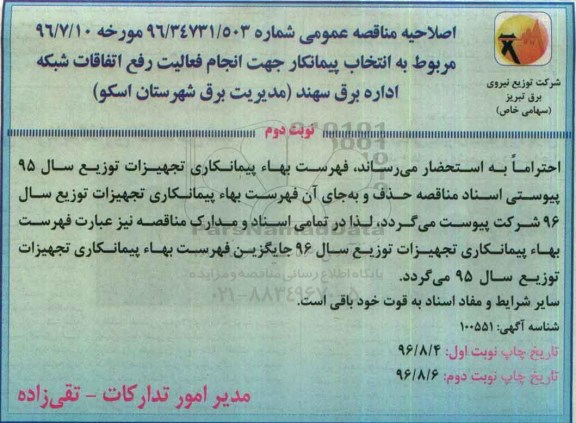 اصلاحیه مناقصه عمومی شماره ۹۶/۳۴۷۳۱/۵۰۳ مورخه ۹۶/۷/۱۰
مربوط به انتخاب پیمانکار جهت انجام فعالیت رفع اتفاقات شبکه
اداره برق سهند (مدیریت برق شهرستان اسکو)
شرکت توزیع نیروی
برق تبریز
(سهامی خاص)
نوبت دوم
احتراماً به استحضار می‌رساند، فهرست بهاء پیمانکاری تجهیزات توزیع سال ۹۵
پیوستی اسناد مناقصه حذف و به‌جای آن فهرست بهاء پیمانکاری تجهیزات توزیع سال
۹۶ شرکت پیوست می‌گردد، لذا در تمامی اسناد و مدارک مناقصه نیز عبارت فهرست
بهاء پیمانکاری تجهیزات توزیع سال ۹۶ جایگزین فهرست بهاء پیمانکاری تجهیزات
توزیع سال ۹۵ می‌گردد.
سایر شرایط و مفاد اسناد به قوت خود باقی است.
شناسه آگهی: ۱۰۰۵۵۱
تاریخ چاپ نوبت اول: ۹۶/۸/۴
تاریخ چاپ نوبت دوم: ۹۶/۸/۶
مدیر امور تدارکات - تقی‌زاده
ParsNamadData
پایگاه اطلاع رسانی مناقصه و مزایده